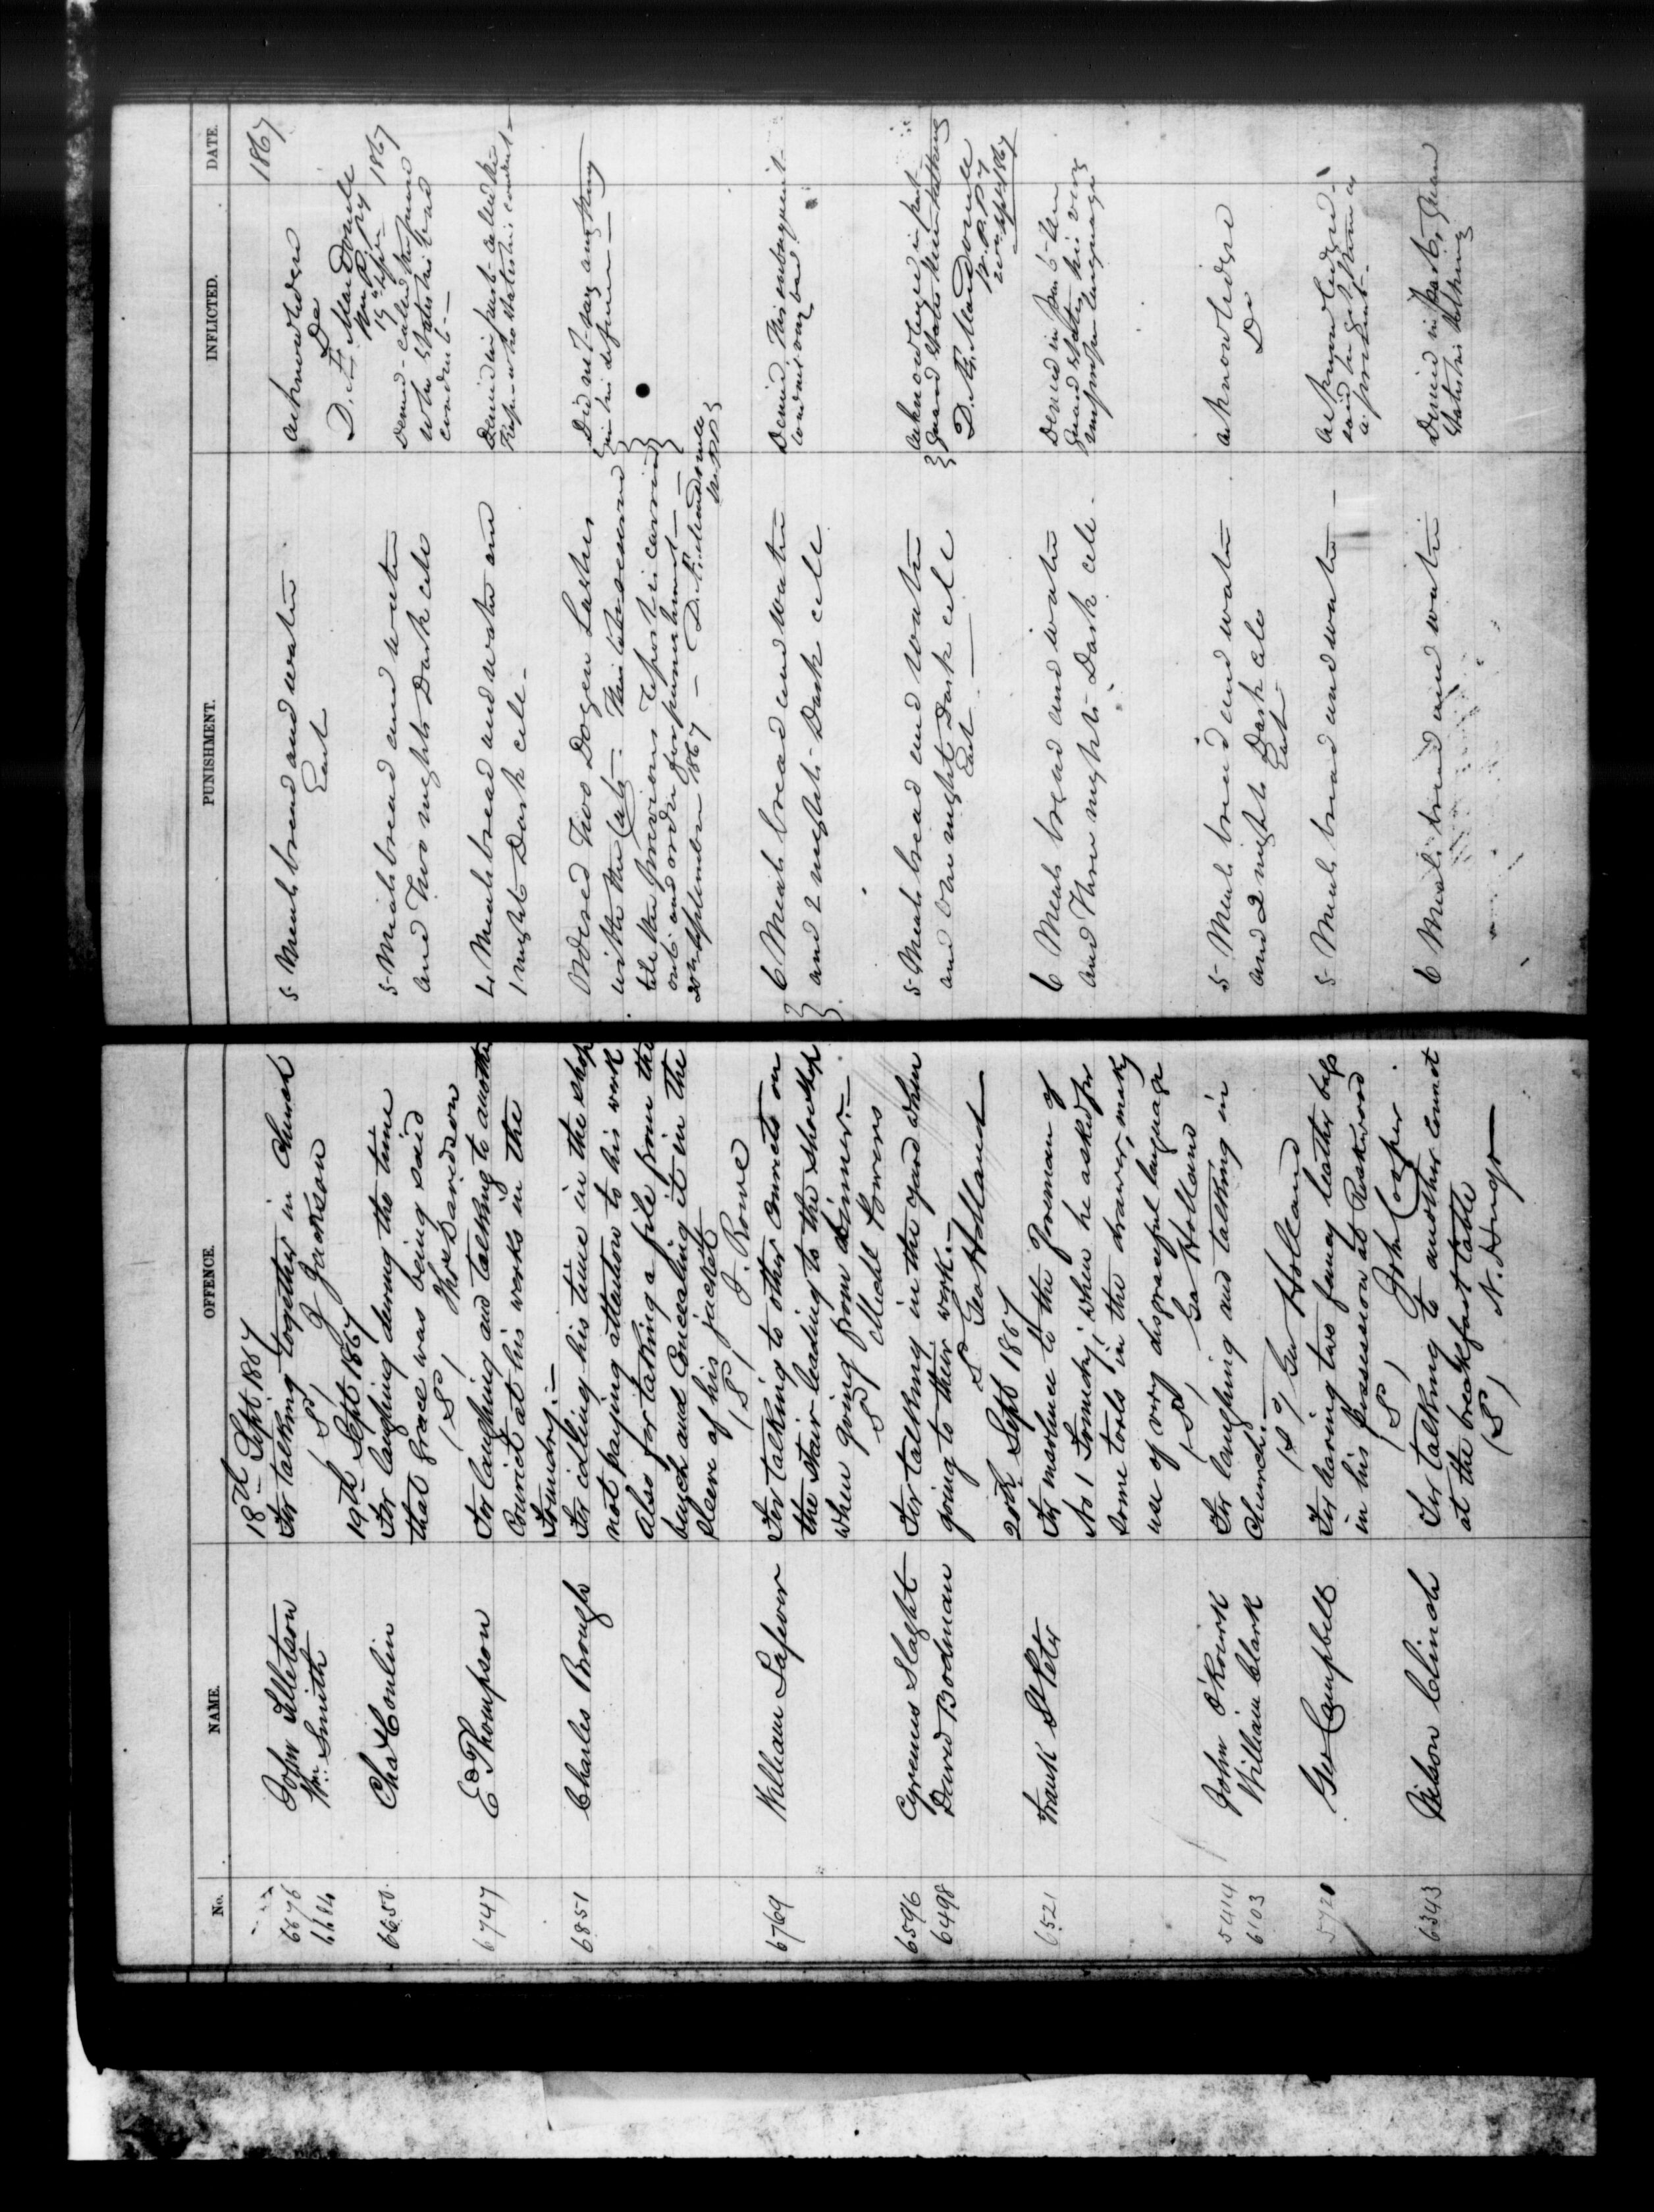 No. NAME. OFFENCE. PUNISHMENT. INFLICTED. DATE.
18th Sept 1867
1867
6676 John Tilletson For talking together in Church 5 Meals bread and water acknowledged
6684 Wm Smith (S) J Jackson Each Do
D. Æ. Macdonell
W.P.P.
19th Sept 1867
19 Sepr 1867
6650 Chas Conlin For laughing during the time 5 Meals bread and water Denied - called the guard
that grace was being said and Two nights Dark cell who states his bad
(S) Thos Davidson conduct
6747 Ed Thompson For laughing and talking to another 4 Meals bread and water and Denied in part called the
Convict at his works in the 1 night Dark cell Keeper who states his conduct
Foundry.
6851 Charles Brough For idling his time in the shop Ordered Two Dozen Lashes Did not say anything
not paying attention to his work with the Cats. in his defence
Also for taking a file from the till the previous report is carried
bench and Concealing it in the out and order for punishment
sleeve of his jacket 20th September 1867 D. Æ. Macdonell
(S) J. Rowe W.P.P.
6769 William Lafever For talking to other Convicts on 6 Meals bread and water Denied His subsequent
the stair leading to the shoe shop and 2 nights Dark cell conduct very bad
when going from dinner.
(S) Michl Powers
6596 Cyrenus Slaght For talking in the yard when 5 Meals bread and water Acknowledged in part
6498 David Bodman going to their work. and one night Dark cell Guard states their talking
(S) Geo Holland Each D. Æ. Macdonell
W.P.P.
20th Sept 1867
20th Sept 1867
6521 Frank St Peter For insolence to the Foreman of 6 Meals bread and water Denied in part the
No 1 Foundry when he asked for and Three nights Dark cell. guard states his very
some tools in the drawer, making improper language
use of very disgraceful language
(S) Geo Holland
5414 John O'Rourk For laughing and talking in 5 Meals bread and water acknowledged
6103 William Clark Church. and 2 nights Dark cell Do
(S) Geo Holland Each
5720 Geo Campbell For having two fancy leather bags 5 Meals bread and water acknowledged
in his possession at Rockwood said he got them as
(S) John Cooper a present
6343 Nilson Clinch For talking to another Convict 6 Meals bread and water Denied in part, Guard
at the breakfast table states his talking
(S) N. Hugo